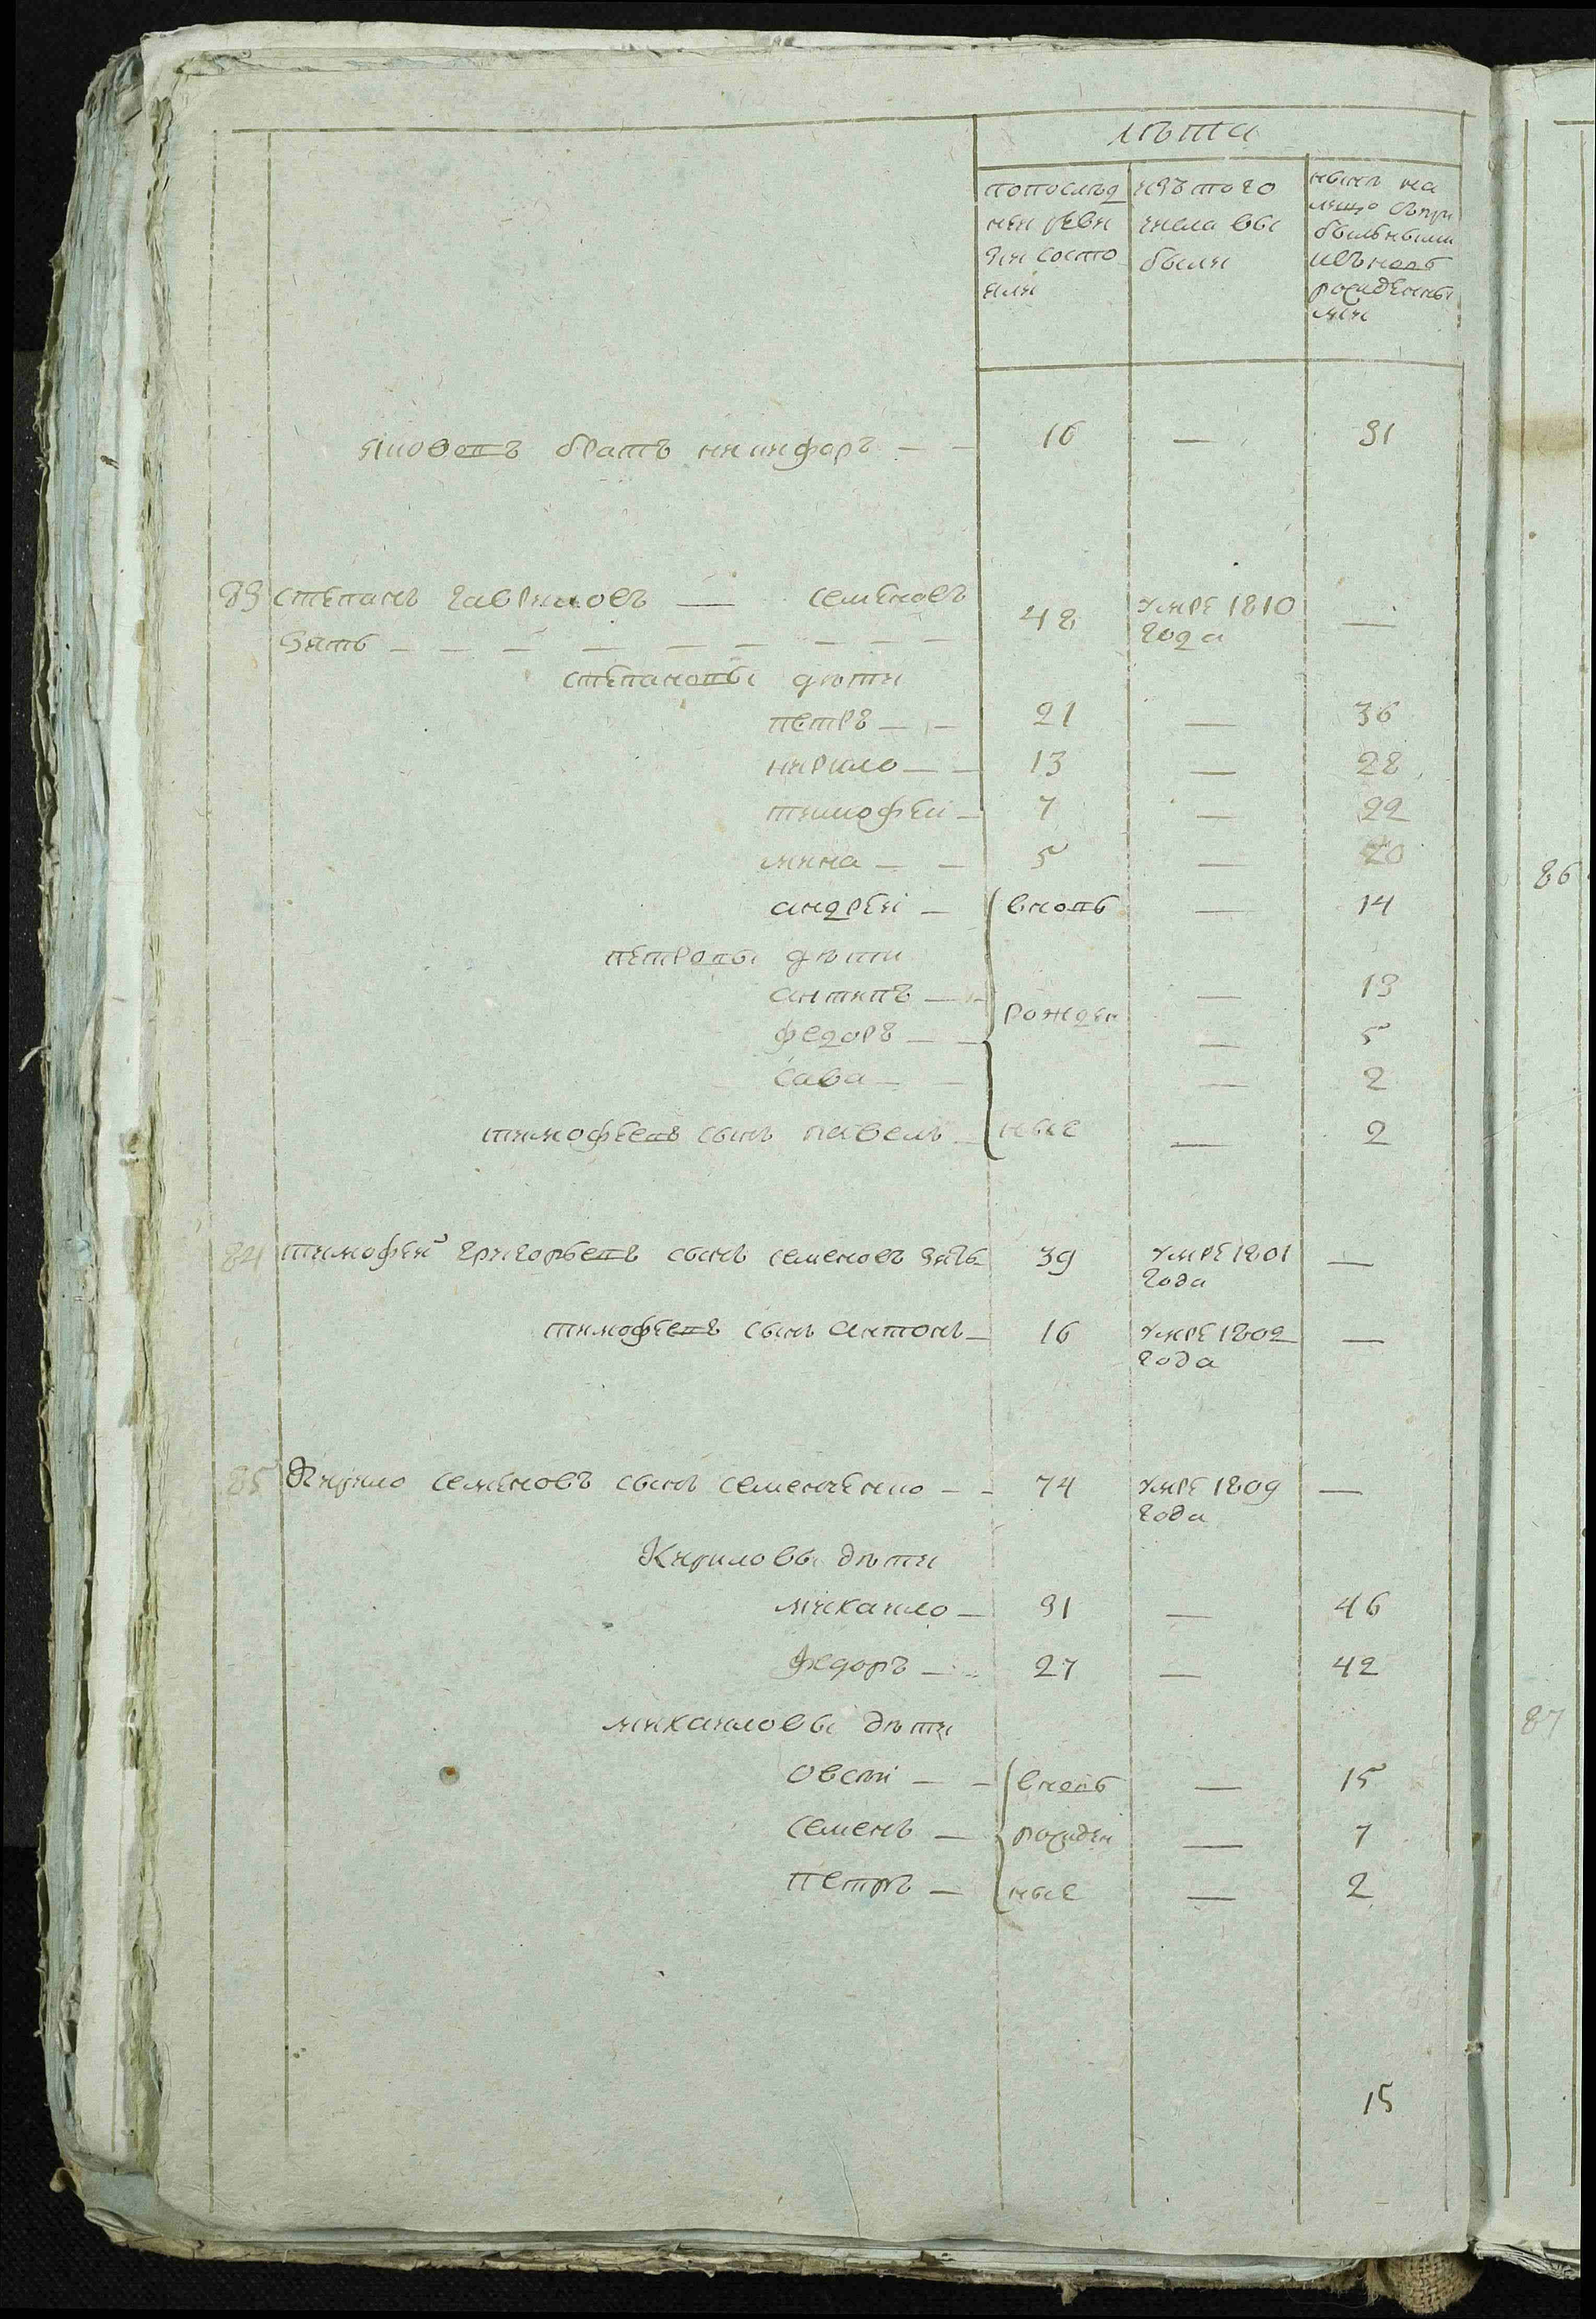 лѣта
попослѣд
ней реви
зіи состо
яли
изъ того
числа вы
были
нынѣ на
лицо съпри
былыми
исъновъ
рожденны
ми
Яковопъ братъ никифоръ — — 16 — 31
83 степанъ гавриловъ — семеновъ
зять — — — — — — — — 48 умре 1810 —
года
степановы дѣти
петръ — — 21 — 36
кирило — — 13 — 28
тимофеи — 7 — 22
мина — — 5 — 20
андреи — вновь — 14
петровы дѣти
антипъ — — — 13
рожден
федоръ — — — 5
сава — — — 2
тимофеевъ сынъ павелъ — ные — 2
84 тимофей григорьевъ сынъ семеновъ зять 39 умре 1801 —
года
тимофеевъ сынъ антонъ — 16 умре 1802 —
года
85 Кирило семеновъ сынъ семенченко — — 74 умре 1809 —
года
Кириловы дѣти
михаило — 31 — 46
федоръ — 27 — 42
михаиловы дѣти
овсѣи — — вновь — 15
семенъ — рожден — 7
петръ — ные — 2
15
86
87